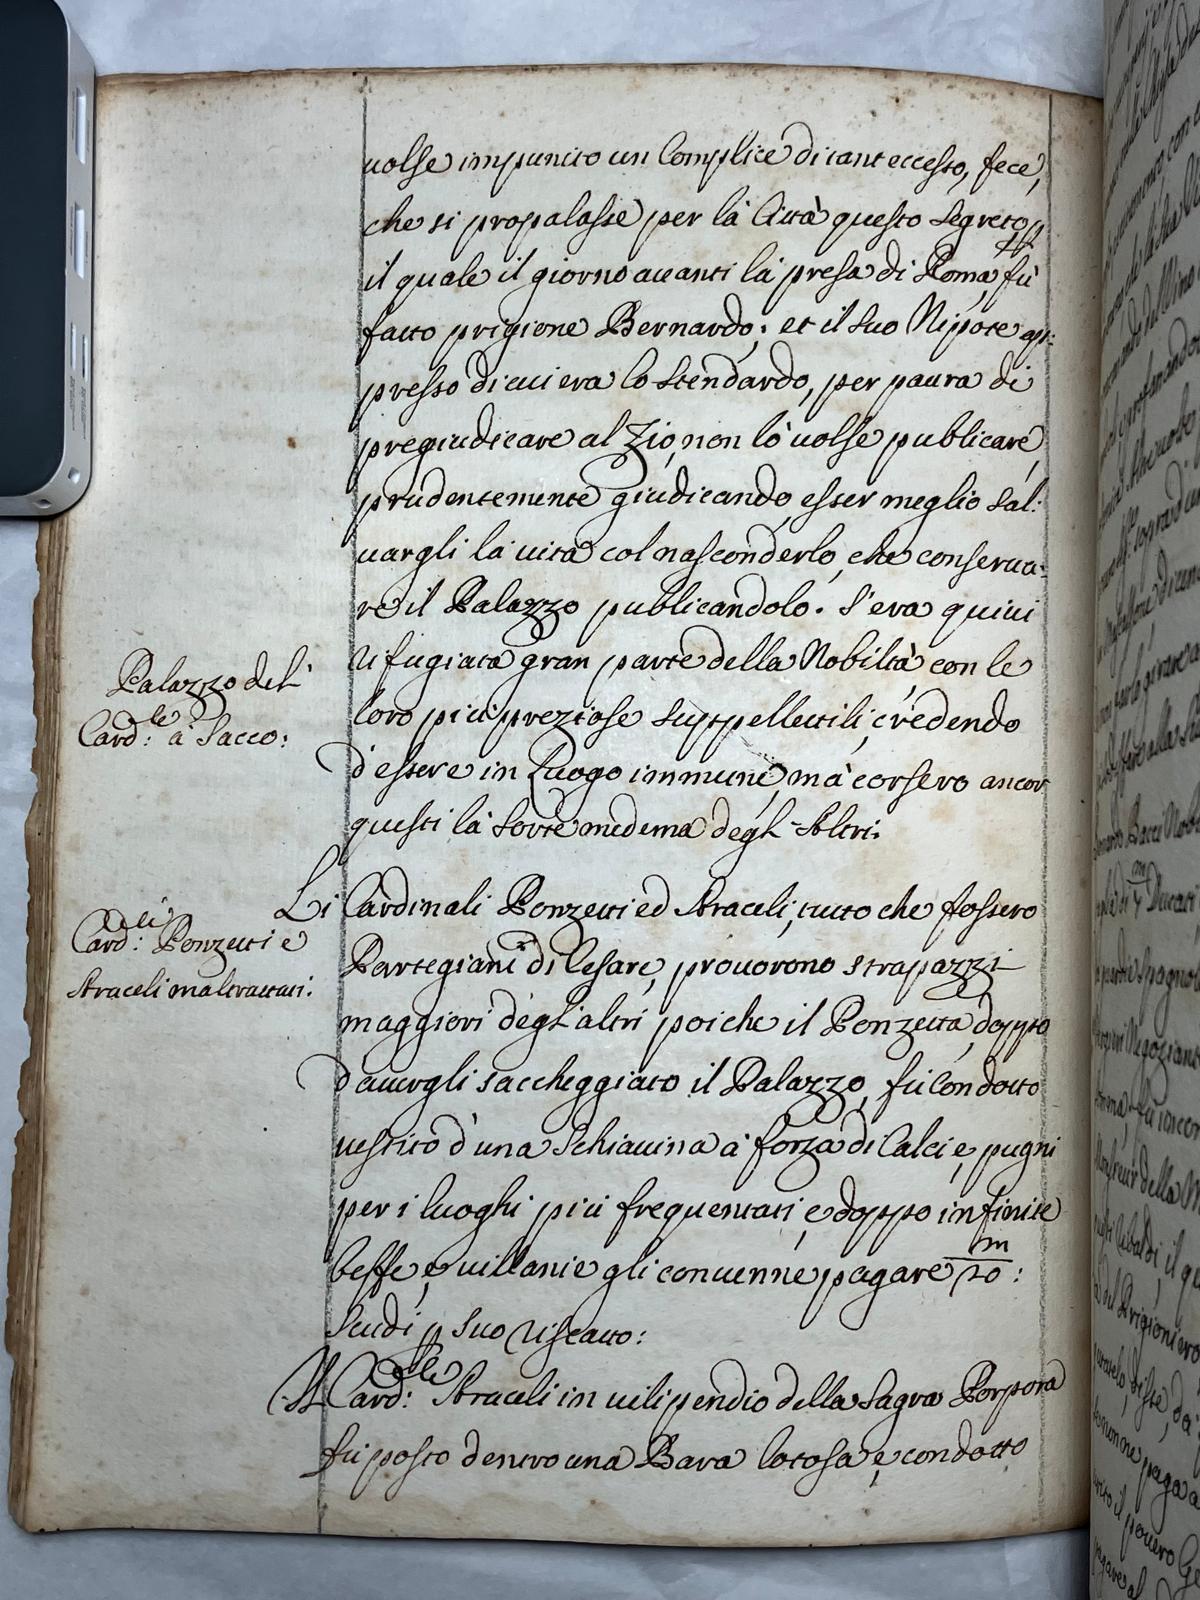 uolse impunito un Complice di tant eccesso, fece,
che si propalasse per la Città questo Segreto, p
il quale il giorno auanti la presa di Roma fù
fatto prigione Bernardo; et il suo Nipote ap:
presso di cui era lo stendardo, per paura di
pregiudicare al Zio, non lo uolse publicare,
prudentemente giudicando, esser meglio Sal:
uargli la uita col nasconderlo, che conserua:
re il Palazzo publicandolo. S'era quiui
rifugiata gran parte della Nobiltà con le
Palazzo del
loro più preziose suppellettili, credendo
Card:le à Sacco:
d'essere in Luogo immune, mà corsero ancor
questi la sorte medema degl'Altri.
Li Cardinali Ponzetti ed Araceli, tutto che fossero
Card:li Ponzetti e
Partegiani di Cesare, prouorono strapazzi
Araceli maltrattati:
maggiori degl'altri poiche il Ponzetta, doppo
d'auergli saccheggiato il Palazzo, fù Condotto
uestito d'una Schiauina à forza di Calci e, pugni
per i luoghi più frequentati, e doppo infinite
beffe, e uillanie gli conuenne pagare 20:m
Scudi p suo riscatto:
Il Card:le Araceli in uilipendio della Sagra Porpora
fù posto dentro una Bara locosa e condotto